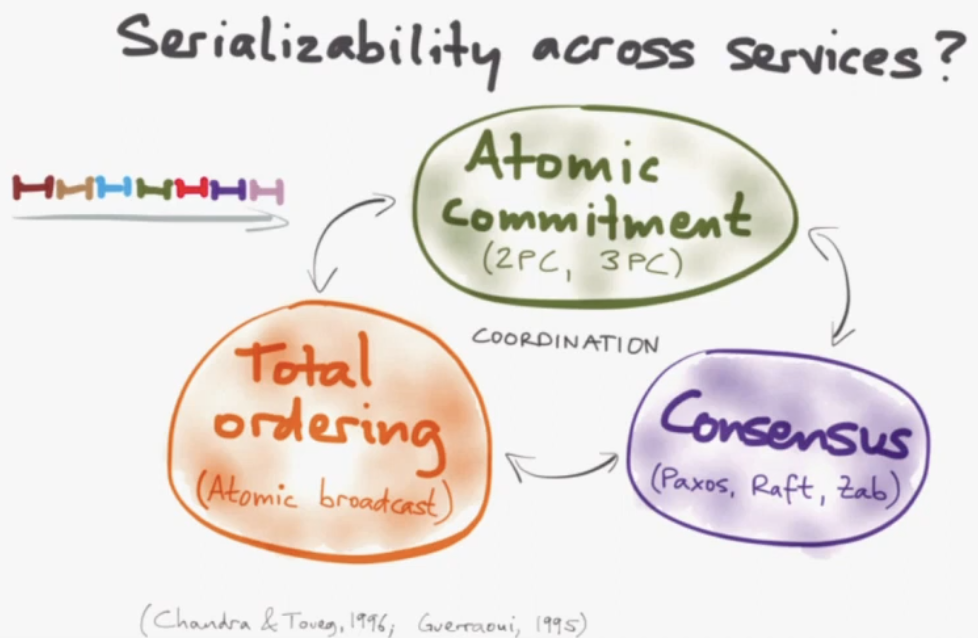 Serializability across services?
Atomic
commitment
(2PC, 3PC)
COORDINATION
Total
ordering
(Atomic broadcast)
Consensus
(Paxos, Raft, Zab)
(Chandra & Toueg, 1996; Guerraoui, 1995)